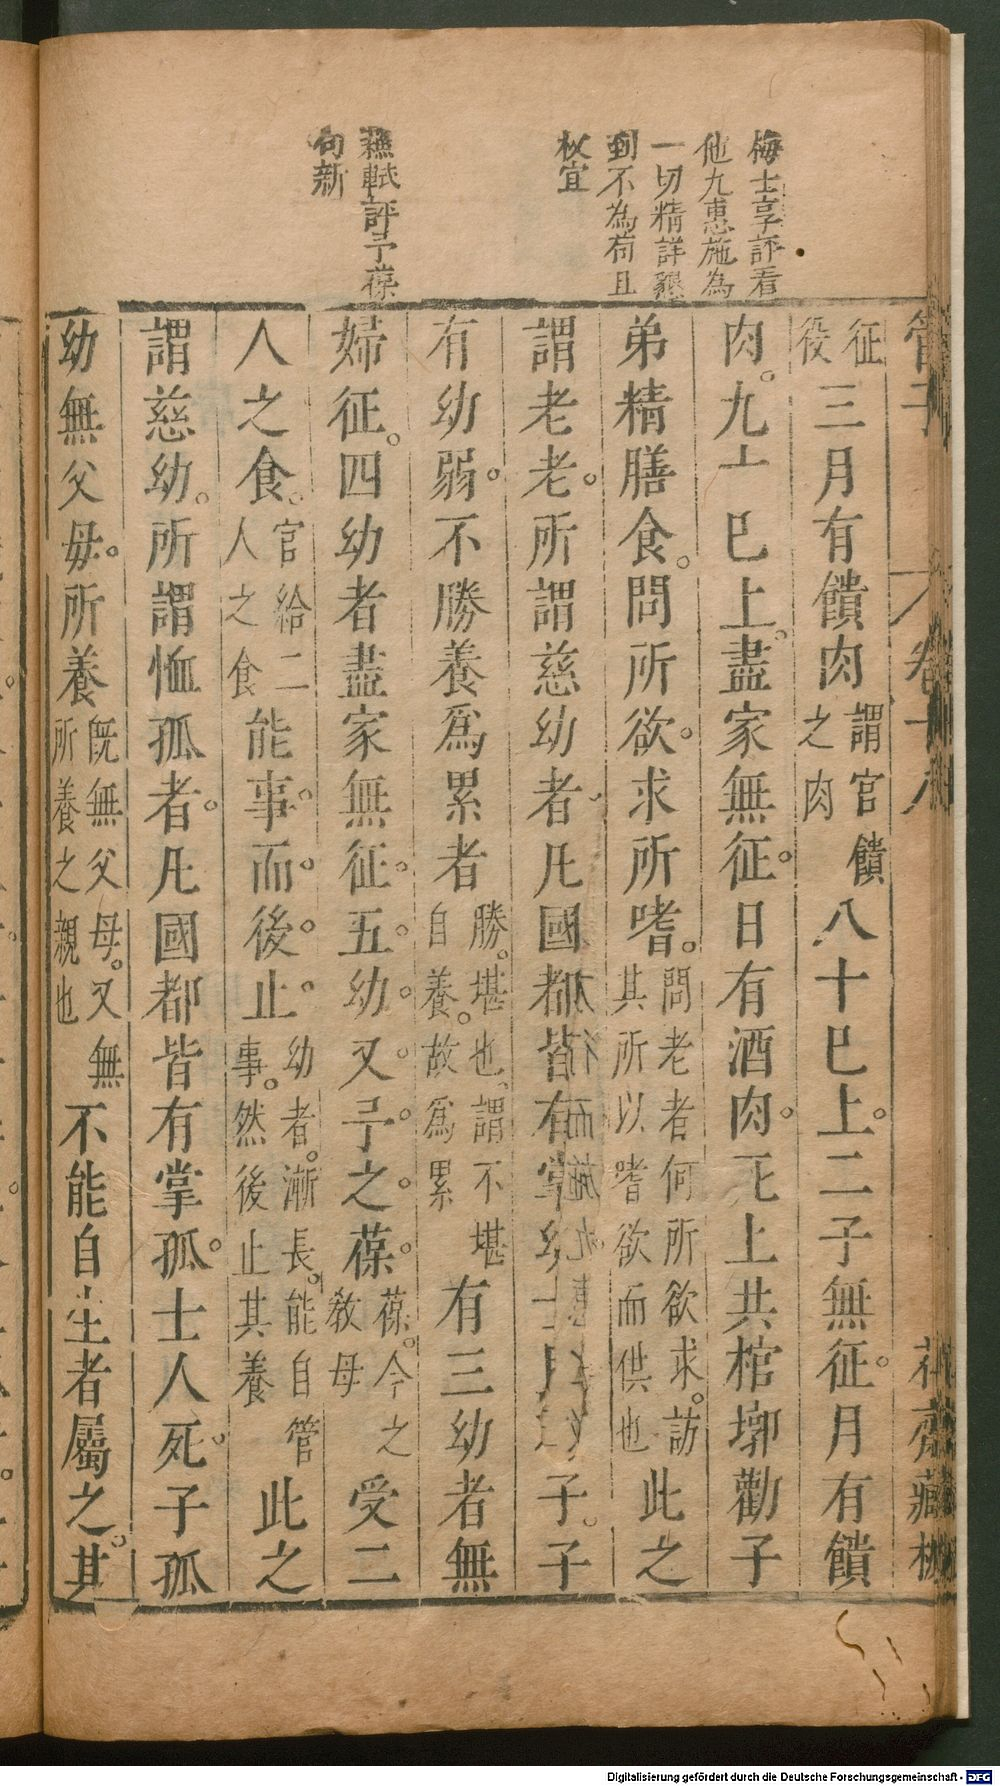 梅士享評看
他九惠施為
一切精詳懇
到不為苟且
枚宜
蘇軾評予葆
句新
管子 卷十八
征役三月有饋肉謂官饋之肉八十巳上二子無征月有饋
肉九十巳上盡家無征日有酒肉死上共棺墎勸子
弟精膳食問所欲求所嗜問老者何所欲求訪其所以嗜欲而供也此之
謂老老所謂慈幼者凡國都皆有掌幼士民之子子
有幼弱不勝養爲累者勝堪也謂不堪自養故爲累有三幼者無
婦征四幼者盡家無征五幼又予之葆葆今之教母受二
人之食官給二人之食能事而後止幼者漸長能自管事然後止其養此之
謂慈幼所謂恤孤者凡國都皆有掌孤士人死子孤
幼無父母所養旣無父母又無所養之親也不能自生者屬之其
Digitalisierung gefördert durch die Deutsche Forschungsgemeinschaft - DFG